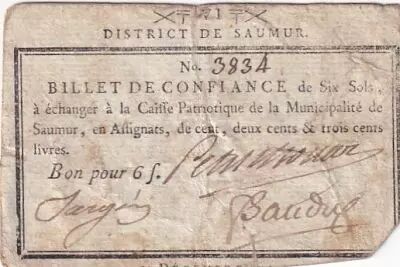 VI
DISTRICT DE SAUMUR.
No. 3834
BILLET DE CONFIANCE de Six Sols,
à échanger à la Caiſſe Patriotique de la Municipalité de
Saumur, en Aſſignats, de cent, deux cents & trois cents
livres.
Bon pour 6 ſ.